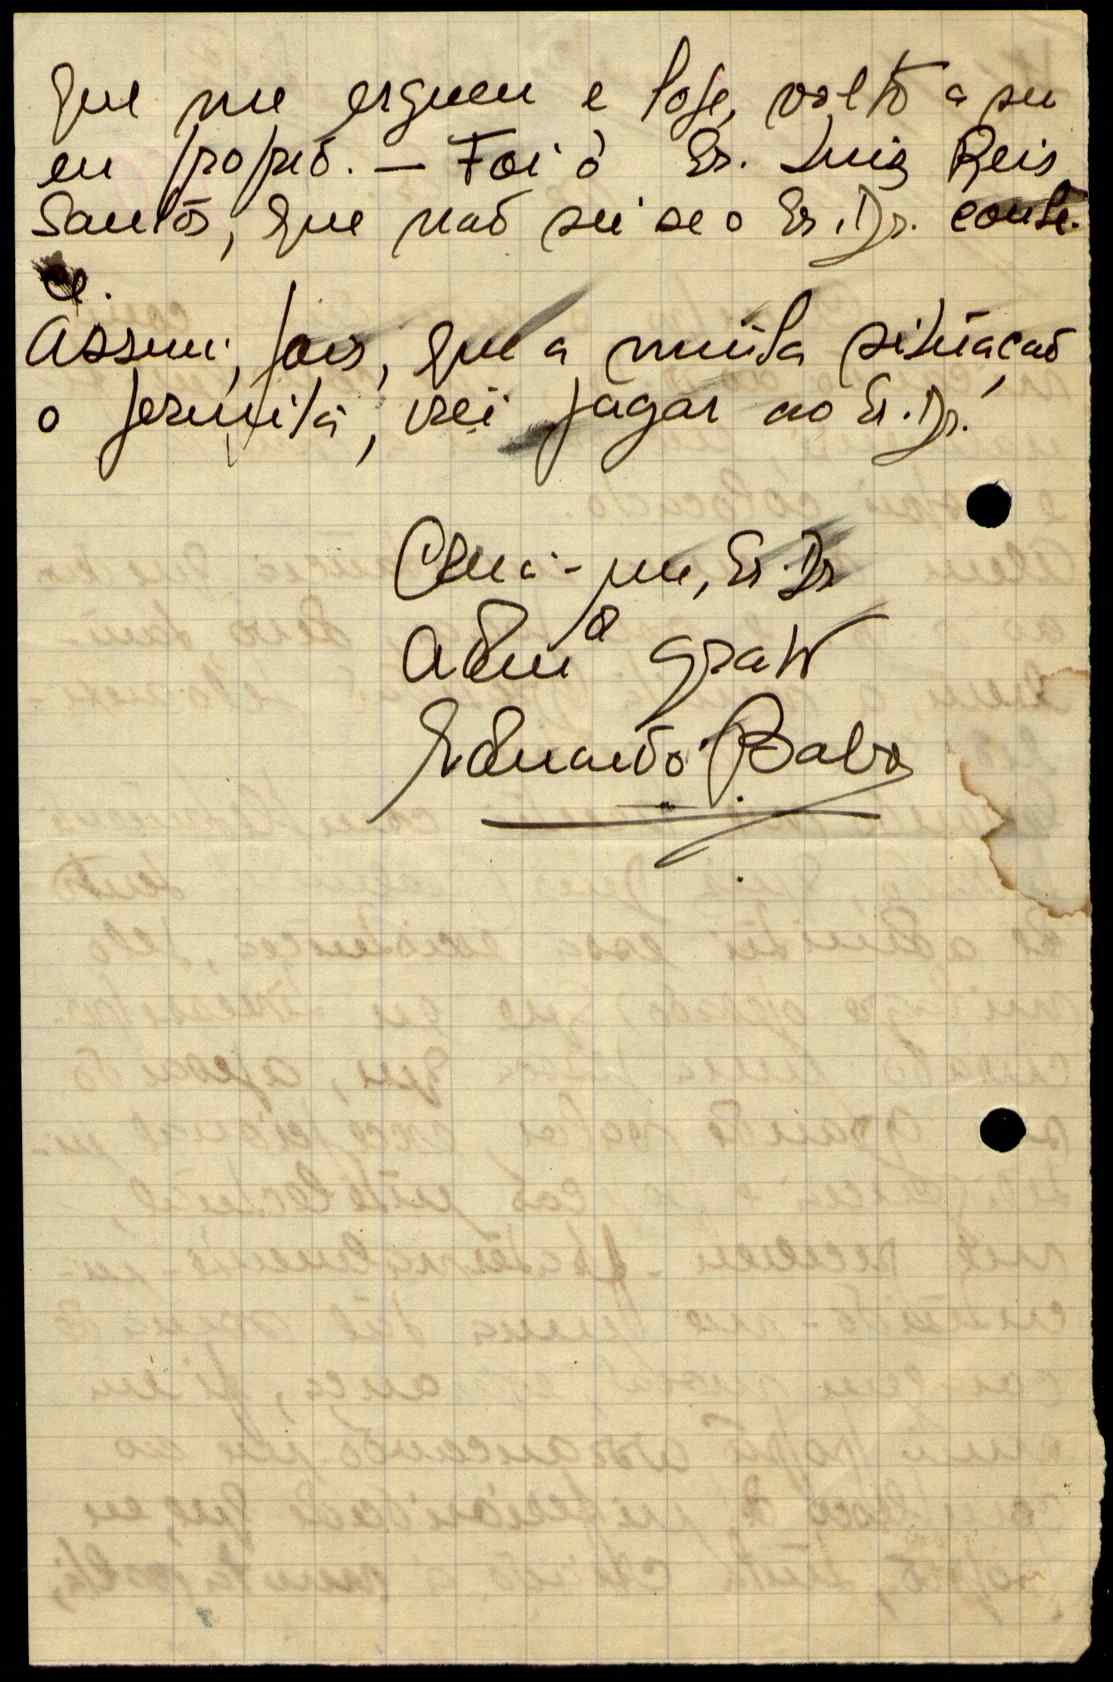 que me ergueu e hoje, volto a ser
eu proprio. — Foi o Sr. Luiz Reis
Santos, que não sei se o Sr. Dr. conhe-
ce.
Assim, pois, que a minha situação
o permita, irei pagar ao Sr. Dr.
Creia-me, Sr. Dr
Admor grato
Eduardo Babo